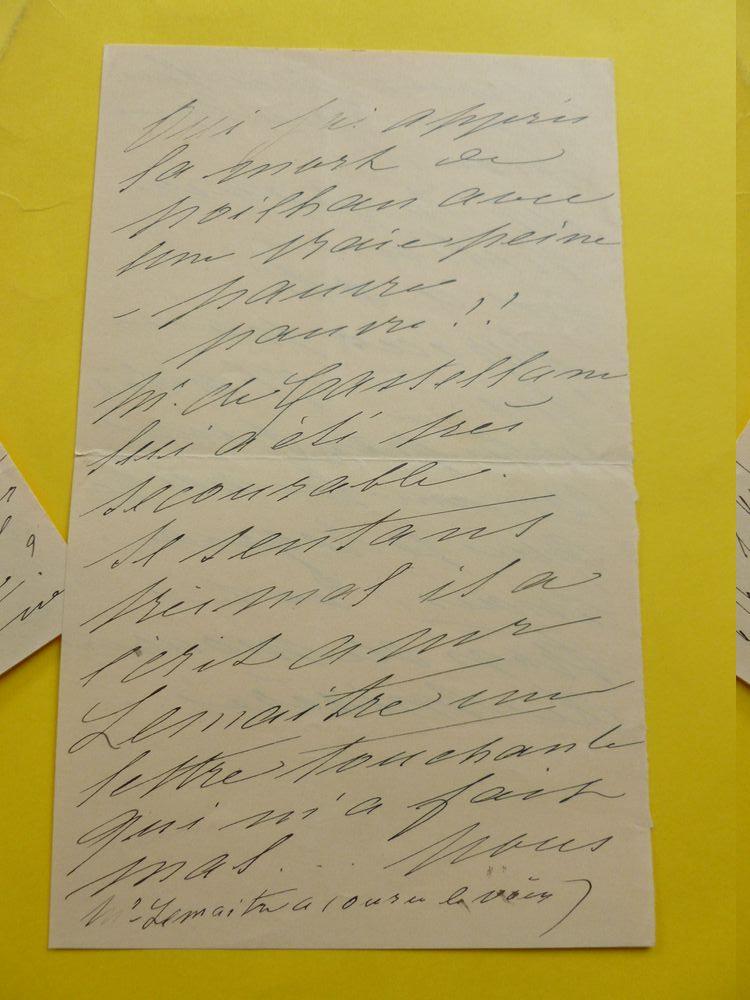 Oui j'ai appris
la mort de
poilhan avec
une vraie peine
- pauvre
pauvre !!
Mr. de Castellane
lui a été très
secourable.
se sentant
très mal il a
écrit a mr
Lemaitre une
lettre touchante
qui m'a fait
mal... nous
Mr Lemaitre a couru le voir)